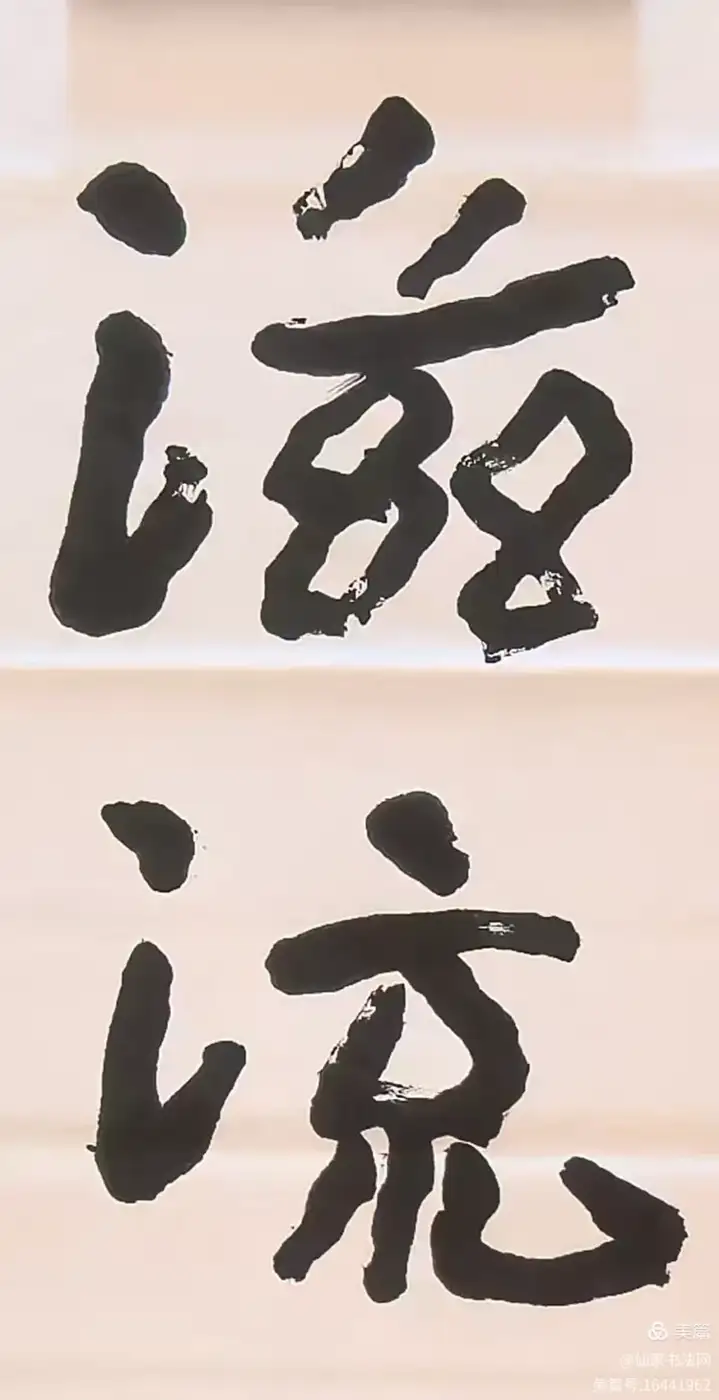 滋
流
美篇
@仙家书法网
美篇号:16441962